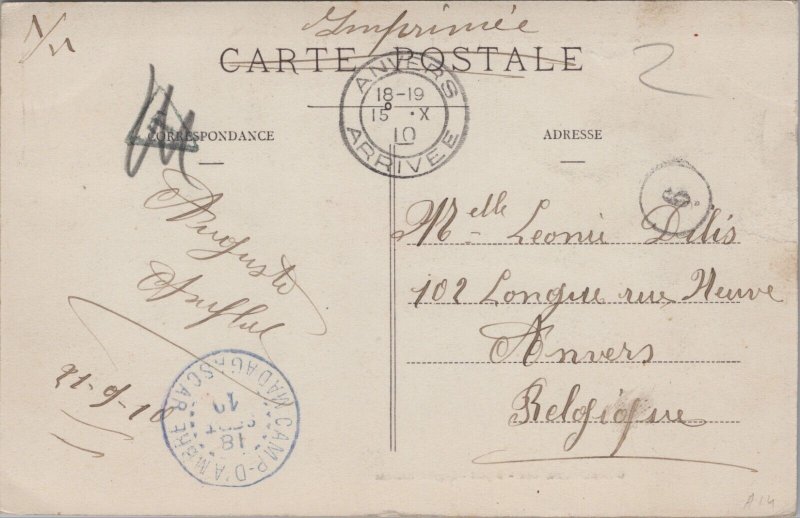 Imprimée
CARTE POSTALE
ANVERS
18-19
15 X
10
ARRIVÉE
CORRESPONDANCE
ADRESSE
Auguste
21-9-10
CAMP-D'AMBRE
18
SEPT
10
MADAGASCAR
Melle Leonie Dilis
102 Longue rue Neuve
Anvers
Belgique